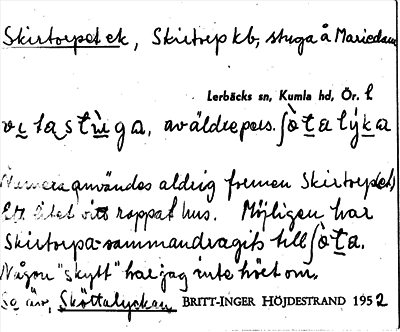 Skirtorpet ek, Skirtorp kb, stuga å Mariedam
Lerbäcks sn, Kumla hd, Ör. l
av äldre pers. ʃò̱ta lýḵa
Numera användes aldrig formen Skirtorp(et)
Ett litet rött rappat hus. Möjligen har
Skirtorpa- sammandragits till ʃò̱ta.
Någon "skytt" har jag inte hört om.
Se äv. Sköttalyckan BRITT-INGER HÖJDESTRAND 1952